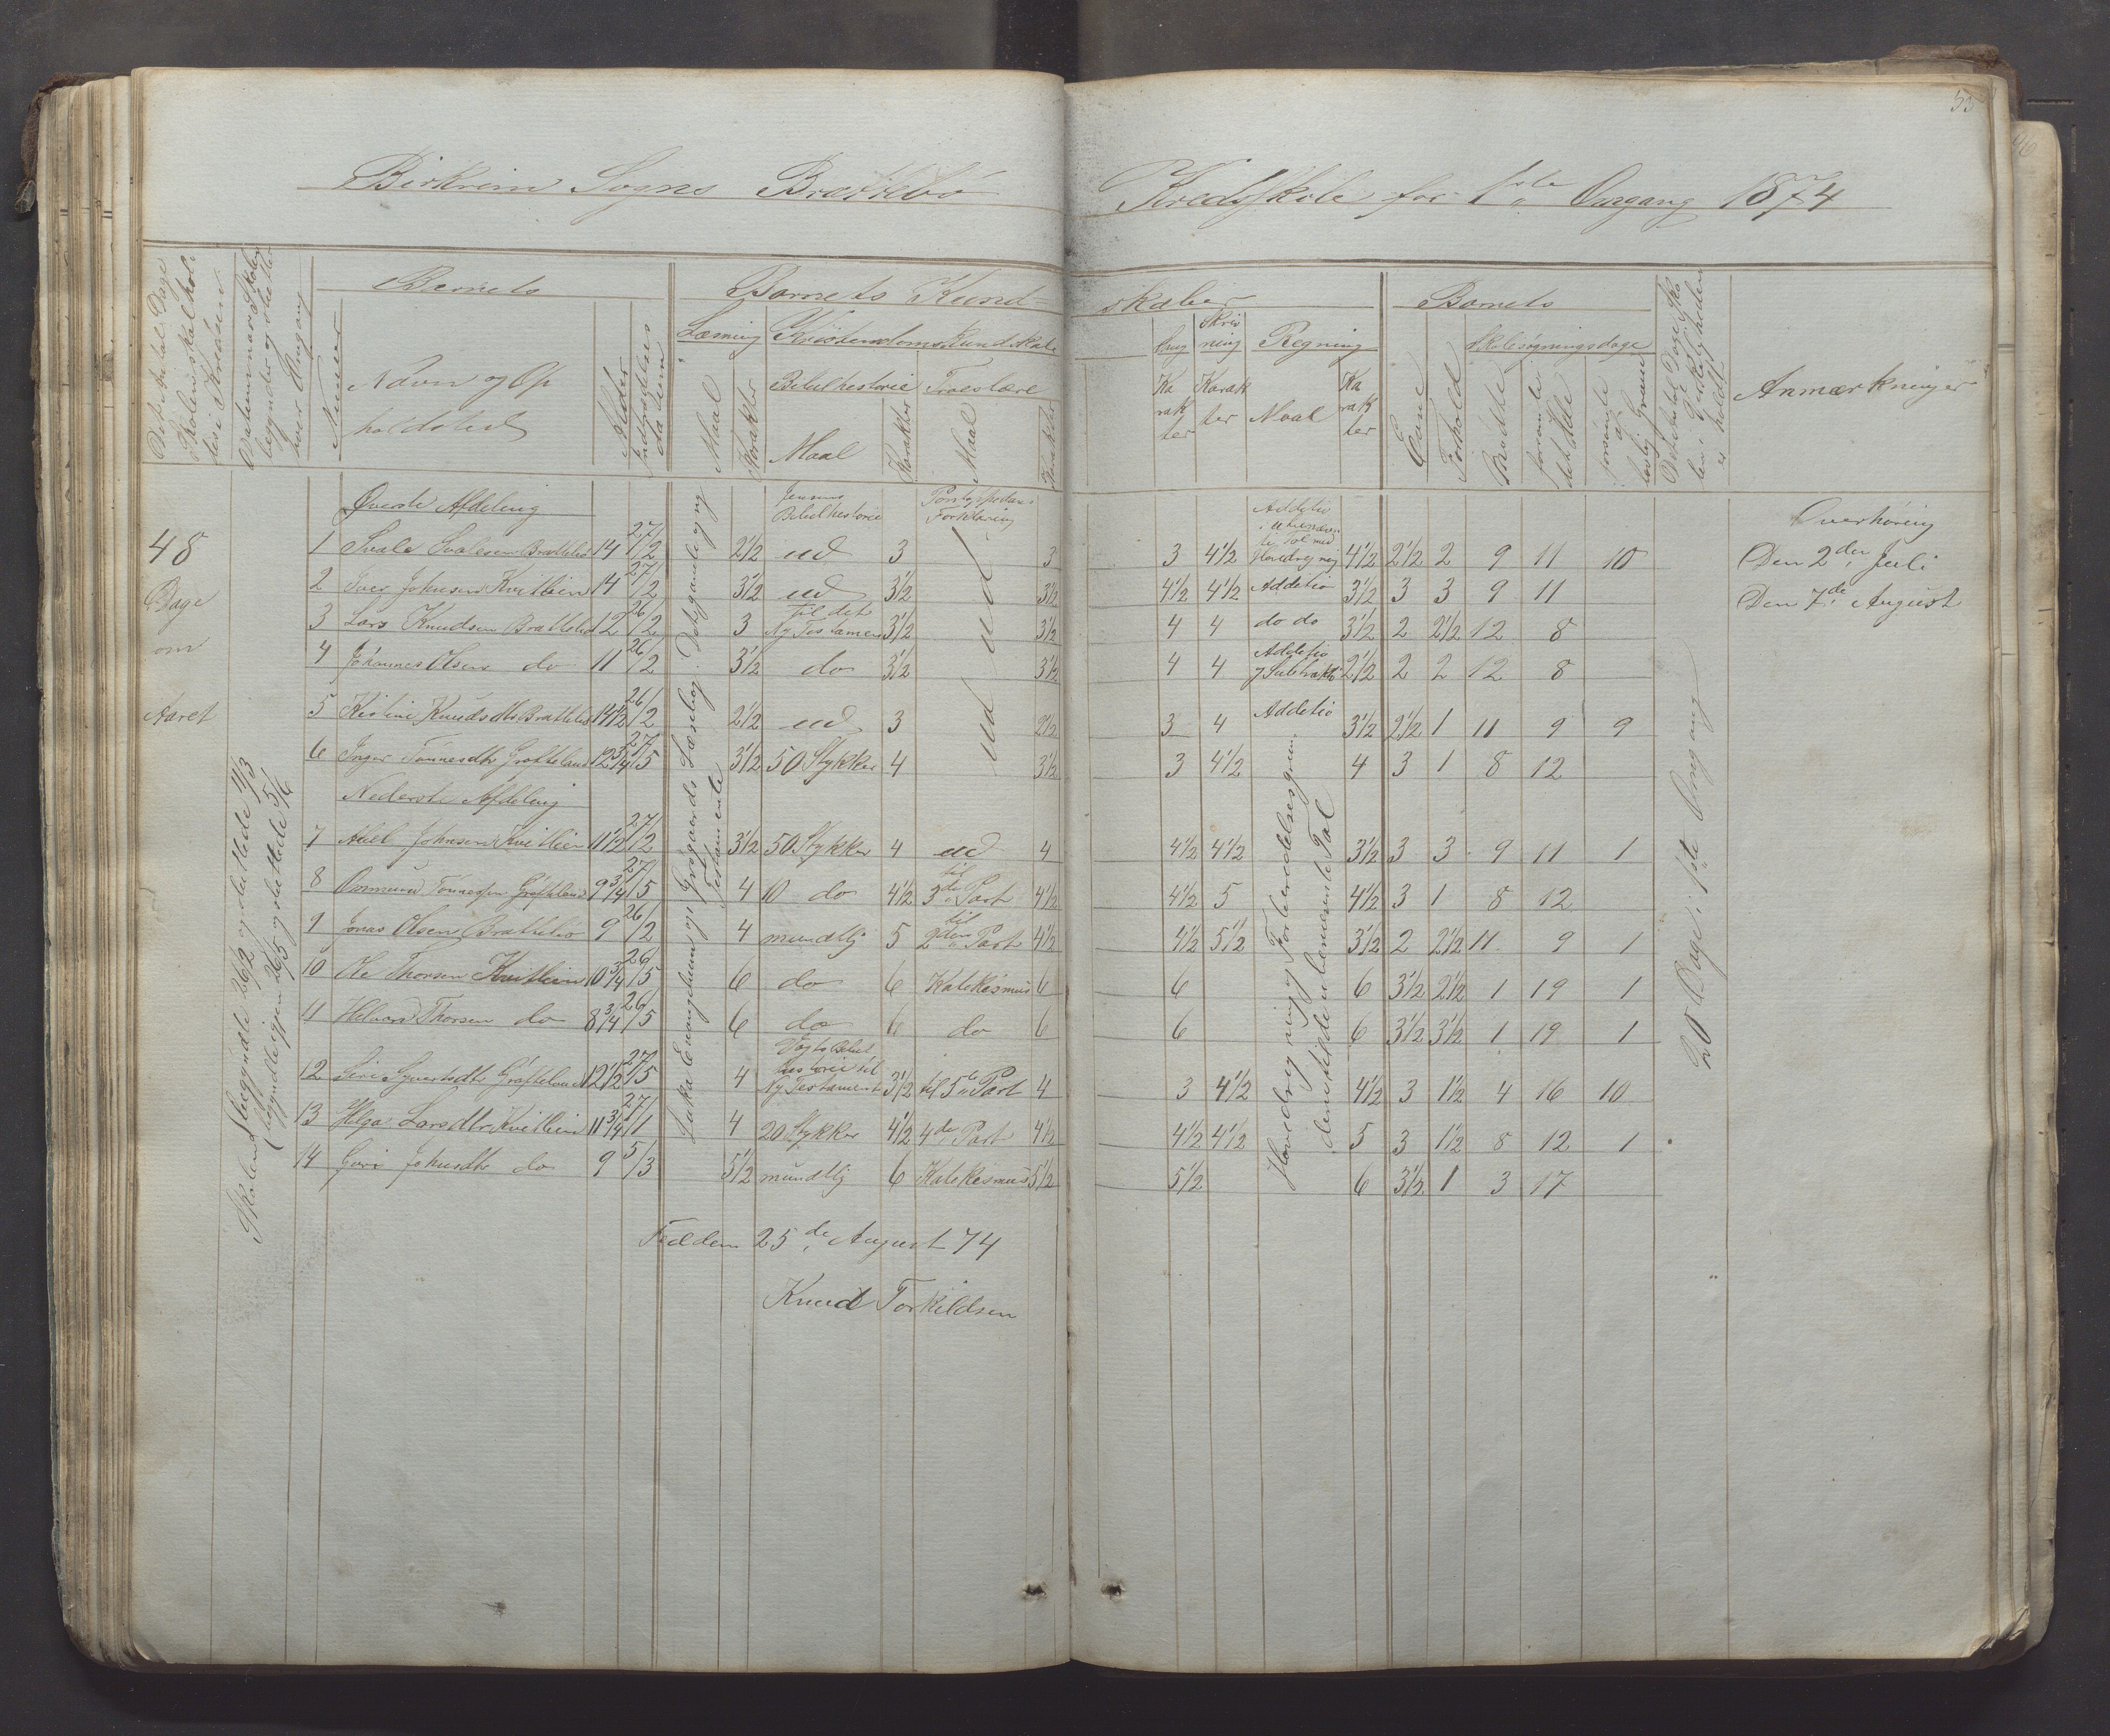 55
Birkrem Sogns Brattebø Kredsskole for 1ste Omgang 1874
Det Antal Dage Skolen skal holdes i Kredsen
Datum naar Skolen begynder og slutter hver Omgang
Barnets
Numer
Navn og Opholdsted
Alder
Indtrædelses datum
Barnets Kundskaber
Læsning
Maal
Karakter
Kristendomskundskab
Bibelhistorie
Maal
Karakter
Troeslære
Maal
Karakter
Karakter
Skrivning
Karakter
Regning
Maal
Karakter
Barnets
Evne
Forhold
Skolesøgningsdage
mødte
forsømte det Hele
forsømte af lovlig Grund
Det Antal Dage Skolen i Virkeligheden er holdt
Anmærkninger
48 Dage om Aaret
Skolen begyndte 26/2 og sluttede 11/3
begyndte igjen 26/5 og sluttede 5/6
Øverste Afdeling
Jensens Bibelhistorie
Pontoppidans Forklaring
Overhøring
Den 2den Juli
Den 7de August
Lukas Evangelium og Testamente
ud
1 Svale Svalesen Brattebø 14 27/2 2½ ud 3 3 3 4½ 4½ 2½ 2 9 11 10
2 Iver Johnsen Kvitlein 14 27/2 3½ ud 3½ 3½ 4½ 4½ Additio 3½ 3 3 9 11
3 Lars Knudsen Brattebø 12 26/2 3 til det Ny Testamen 3½ 3½ 4 4 do do 3½ 2 2½ 12 8
4 Johannes Olsen do 11 26/2 3½ do 3½ 3½ 4 4 Additio og Subtrakti 2½ 2 2 12 8
5 Kistine Knudsdtr Brattebø 14½ 26/2 2½ ud 3 2½ 3 4 Additio 3½ 2½ 1 11 9 9
6 Inger Tønnesdtr Gräfteland 12¾ 27/5 3½ 50 Stykker 4 3½ 3 4½ 4 3 1 8 12
Nederste Afdeling
7 Abel Johnsen Kvitlein 11½ 27/2 3½ 50 Stykker 4 ud 4 4½ 4½ 3½ 3 3 9 11 1
8 Ommund Tønnessen Gräfteland 9¾ 27/5 4 10 do 4½ til 3de Part 4½ 4½ 5 4½ 3 1 8 12
9 Jonas Olsen Brattebø 9 26/2 4 mundtlig 5 til 2den Part 4½ 4½ 5½ 3½ 2 2½ 11 9 1
10 Ole Thorsen Kvitlein 10¾ 26/5 6 do 6 Katekismus 6 6 6 3½ 2½ 1 19 1
11 Helvard Thorsen do 8¾ 26/5 6 do 6 do 6 6 6 3½ 3½ 1 19 1
12 Siri Syvertsdtr Gräfteland 12½ 27/5 4 Vogts Bibelhistorie til Ny Testament 3½ til 5te Part 4 3 4½ 4½ 3 1½ 4 16 10
13 Helga Larsdtr Kvitlein 11¾ 27/1 4 20 Stykker 4½ 4de Part 4½ 4½ 4½ 5 3 1½ 8 12 1
14 Guri Johnsdtr do 9 5/3 5½ mundtlig 6 Katekismus 5½ 5½ 6 3½ 1 3 17
Hovedregning og Forberedelsesgrunden
de enstifrede ubenævnte Tal
20 Dage i 1ste Omgang
25de August 74
Knud Torkildsen